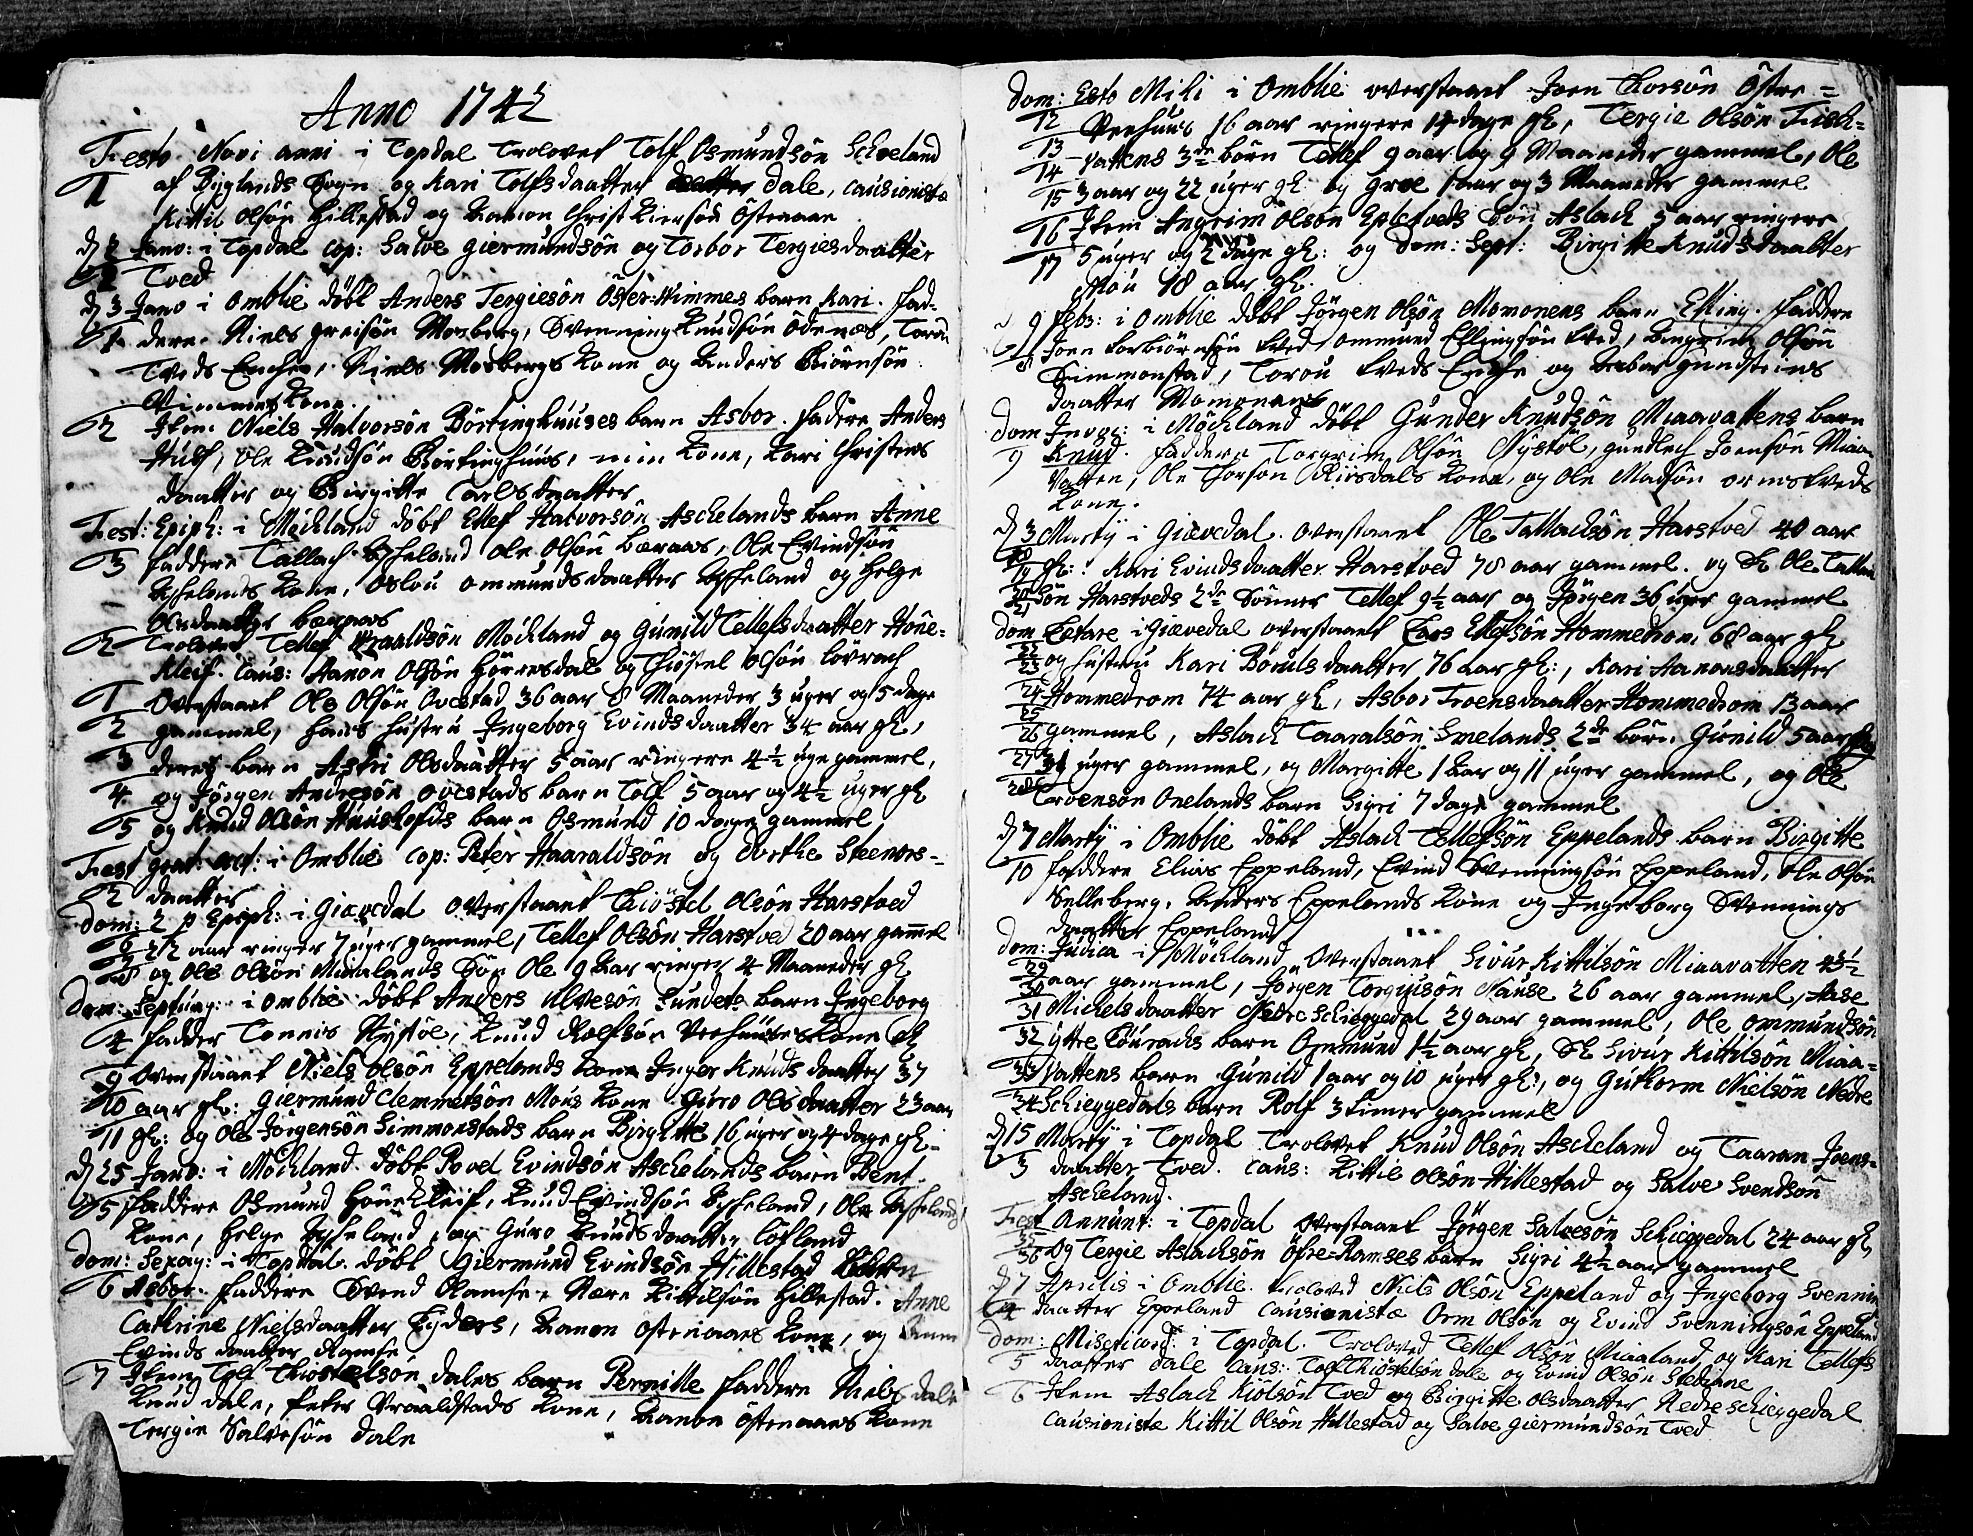 Anno 1742
Festo Novi anni i Topdal Trolovet Tolf Osmundsön Scheeland
1 af Byglands Sogn og Kari Tolfsdaatter dale, causionistæ
Kittil Olsön Hillestad og Aanon Christ Ostenaae
d 2 Janv: i Topdal cop: Salve Giermundsön og Torbor Tergiesdaatter
1 Tved
d 3 Janv i Omblie döbt Anders Tergiesön Öster-Vimmes barn Kari. Fad-
1 dere. Niels Greisön Mosberg, Svenning Knudsön Ödenæs, Toro
Tveds Enche, Niels Mosbergs Kone og Anders Biörnsön
Vimmes Kone.
2 Item Niels Halvorsön Börtinghuuses barn Asbor. Fadere Anders
Huus, Ole Knudsön Börtinghuus, min Kone, Kari Christens
daatter og Birgitte Carlsdaatter
Fest: Epiph: i Möckland döbt Ellef Halvorsön Aschelands barn Anne
3 faddere Tallach Ascheland Ole Olsön bæraas, Ole Evindsön
Aschelands Kone, Oslou Ommundsdaatter Ascheland og Helge
Olsdaatter bæraas
2 Trolovet Tellef Haraldsön Möckland og Gunild Tellefsdaatter Höne-
Kleif. Caus: Aanon Olsön Hörresdal og Thiöstel Olsön Lövrach
1 Overstaaet Ole Olsön Ovestad 36 aar 8 Maaneder 3 uger og 5 dage
2 gammel, hans hustru Ingeborg Evindsdaatter 34 aar gl,
3 deres barn Astri Olsdaatter 5 aar ringere 4½ uge gammel,
4 og Jörgen Andresön Ovestads barn Tolf 5 aar og 4½ uger gl
5 og Knud Olsön Huushofds barn Osmund 10 dage gammel
Fest grat: act: i Omblie cop: Peter Haaraldsön og Dorthe Steeners-
2 daatter
dom: 2 p Epiph: i Giævedal overstaaet Thiöstel Olsön Harstved
6 22 aar ringer 7 uger gammel, Tellef Olsön Harstved 20 aar gammel
8 og Ole Olsön Miaalands Sön Ole 9 aar ringer 4 Maaneder gl
dom: Septuag: i Omblie döbt Anders Alvesön Lundets barn Ingeborg
4 fadder Tonnis Nystöl, Knud Rolfsön Veehuuses Kone
9 Overstaaet Niels Olsön Eppelands Kone Inger Knudsdaatter 37
10 aar gl: Giermund Clemmetsön Möis Kone Giuro Olsdaatter 23 aar
11 gl: og Ole Jörgensön Simmonstads barn Birgitte 16 uger og 4 dage gl:
d 25 Janv: i Möckland. döbt Povel Evindsön Aschelands barn Bent.
5 faddere Osmund Hönekleif, Knud Evindsön Ascheland, Ole Aschelands
Kone, Helge Ascheland, og Guro Knudsdaatter Löfland
dom: Sexag: i Topdal. döbt Giermund Evindsön Hillestad
6 Asbor. Faddere Svend Ramse, Nære Kittilsön Hillestad. Anne
Cathrine Nielsdaatter Ryders, Aanon Ostenaaes Kone, og
Evindsdaatter Ramse
7 Item Tolf Thiostelsön dales barn Pernille Faddere Niels dale
Knud dale, Peter Vraaldstads Kone, Aanon Östenaaes Kone
Tergie Salvesön dale
Dom: Esto Mihi i Omblie overstaaet Joen Thorsön Östre=
12 Veehuus 16 aar ringere 14 dage gl, Tergie Olsön Fisk-
13 vattens 3de börn Tellef 9 aar og 9 Maaneder gammel, Ole
14
15 3 aar og 22 uger gl: og Groe 1 aar og 3 Maaneder gammel
16 Item Angrim Olsön Epletveds Sön Aslach 5 aar ringere
17 5 uger og 2 dage gl: og Dom: Sept: Birgitte Knudsdaatter
Möu 78 aar gl.
d 9 Febr: i Omblie döbt Jörgen Olsön Momonens barn Elling. faddere
8 Joen Torbiörnsön Tved, Ommund Ellingsön Tved, Olsön
Simmonstad, Torou Tveds Enche og Gundsteens
daatter Momonens
dom Invoc: i Möckland döbt Gunder Knudsön Miaavattens barn
9 Knud. faddere Torgrim Olsön Nystöl, Gundlech Joensön Miaa
vatten, Ole Thorsön Riisdals Kone, og Ole Madsön Ormstveds
Kone.
d 3 Martij i Giævedal. overstaaet Ole Tallachsön Harstved 40 aar
gl: Kari Evindsdaatter Harstved 78 aar gammel. og Ole Tallac
sön Harstveds 2de Sönner Tellef 9½ aar og Jörgen 36 uger gammel
dom Lætare i Giævedal overstaaet Lars Ellefsön Hommedrom 68 aar gl
22 og hustru Kari Börulsdaatter 76 aar gl:, Kari Aanonsdaatter
23
24 Hommedrom 74 aar gl, Asbor Troensdaatter Hommedrom 13 aar
25
26 gammel, Aslach Taaralsön Smelands 2de börn Gunild 5 aar
27 31 uger gammel, og Margitte 1 aar og 11 uger gammel, og Ole
28 Troensön Onelands barn Sigri 7 dage gammel
d 7 Martij i Omblie döbt Aslach Tellefsön Eppelands barn Birgitte
10 faddere Elias Eppeland, Evind Svenningsön Eppeland, Ole Olsön
Selleberg, Anders Eppelands Kone og Ingeborg Svennings
daatter Eppeland
dom: Judica i Möckland Overstaaet Sivur Kittilsön Miaavatten 43½
29
30 aar gammel, Jörgen Torgiusön Nause 26 aar gammel, Aase
31 Michelsdaatter Nedre Schieggedal 29 aar gammel, Ole Ommundsön
32 Ytre Lauvrachs barn Ommund 1½ aar gl, Sivur Kittilsön Miaa-
33 vattens barn Gunild 1 aar og 10 uger gl:, og Guthorm Nielsön Nedre
34 Schieggedals barn Rolf 3 timer gammel
d 15 Martij i Topdal Trolovet Knud Olsön Ascheland og Taaran Joens-
3 daatter Tved. Caus: Kittil Olsön Hillestad og Salve Svendsön
Ascheland.
Fest Annunt: i Topdal Overstaaet Jörgen Salvesön Schieggedal 24 aar gl,
35
36 Og Tergie Aslachsön Öfre Ramses barn Sigri 4½ aar gammel
d 7 Aprilis i Omblie. trolovd Niels Olsön Eppeland og Ingeborg Svennin
4 daatter Eppeland Causionistæ Orm Olsön og Evind Svenningsön Eppeland
Dom: Misericord: i Topdal. Troloved Tellef Olsön Miaaland og Kari Tellefs
5 daatter dale Caus: Tolf Thiostelsön dale og Evind Olsön
6 Item Aslach Kiölsön Tved og Birgitte Olsdaatter Nedre Schieggedal
Causionistæ Kittil Olsön Hillestad og Salve Giermundsön Tved